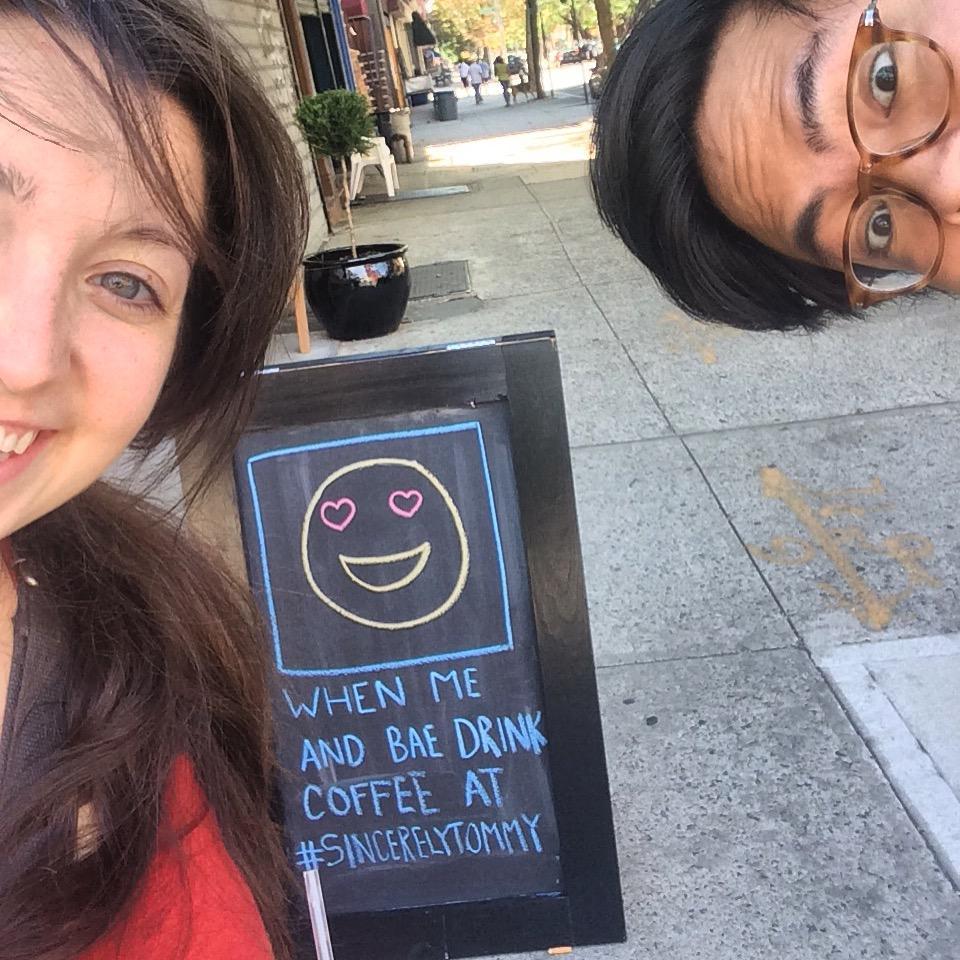 WHEN ME
AND BAE DRINK
COFFEE AT
#SINCERELYTOMMY